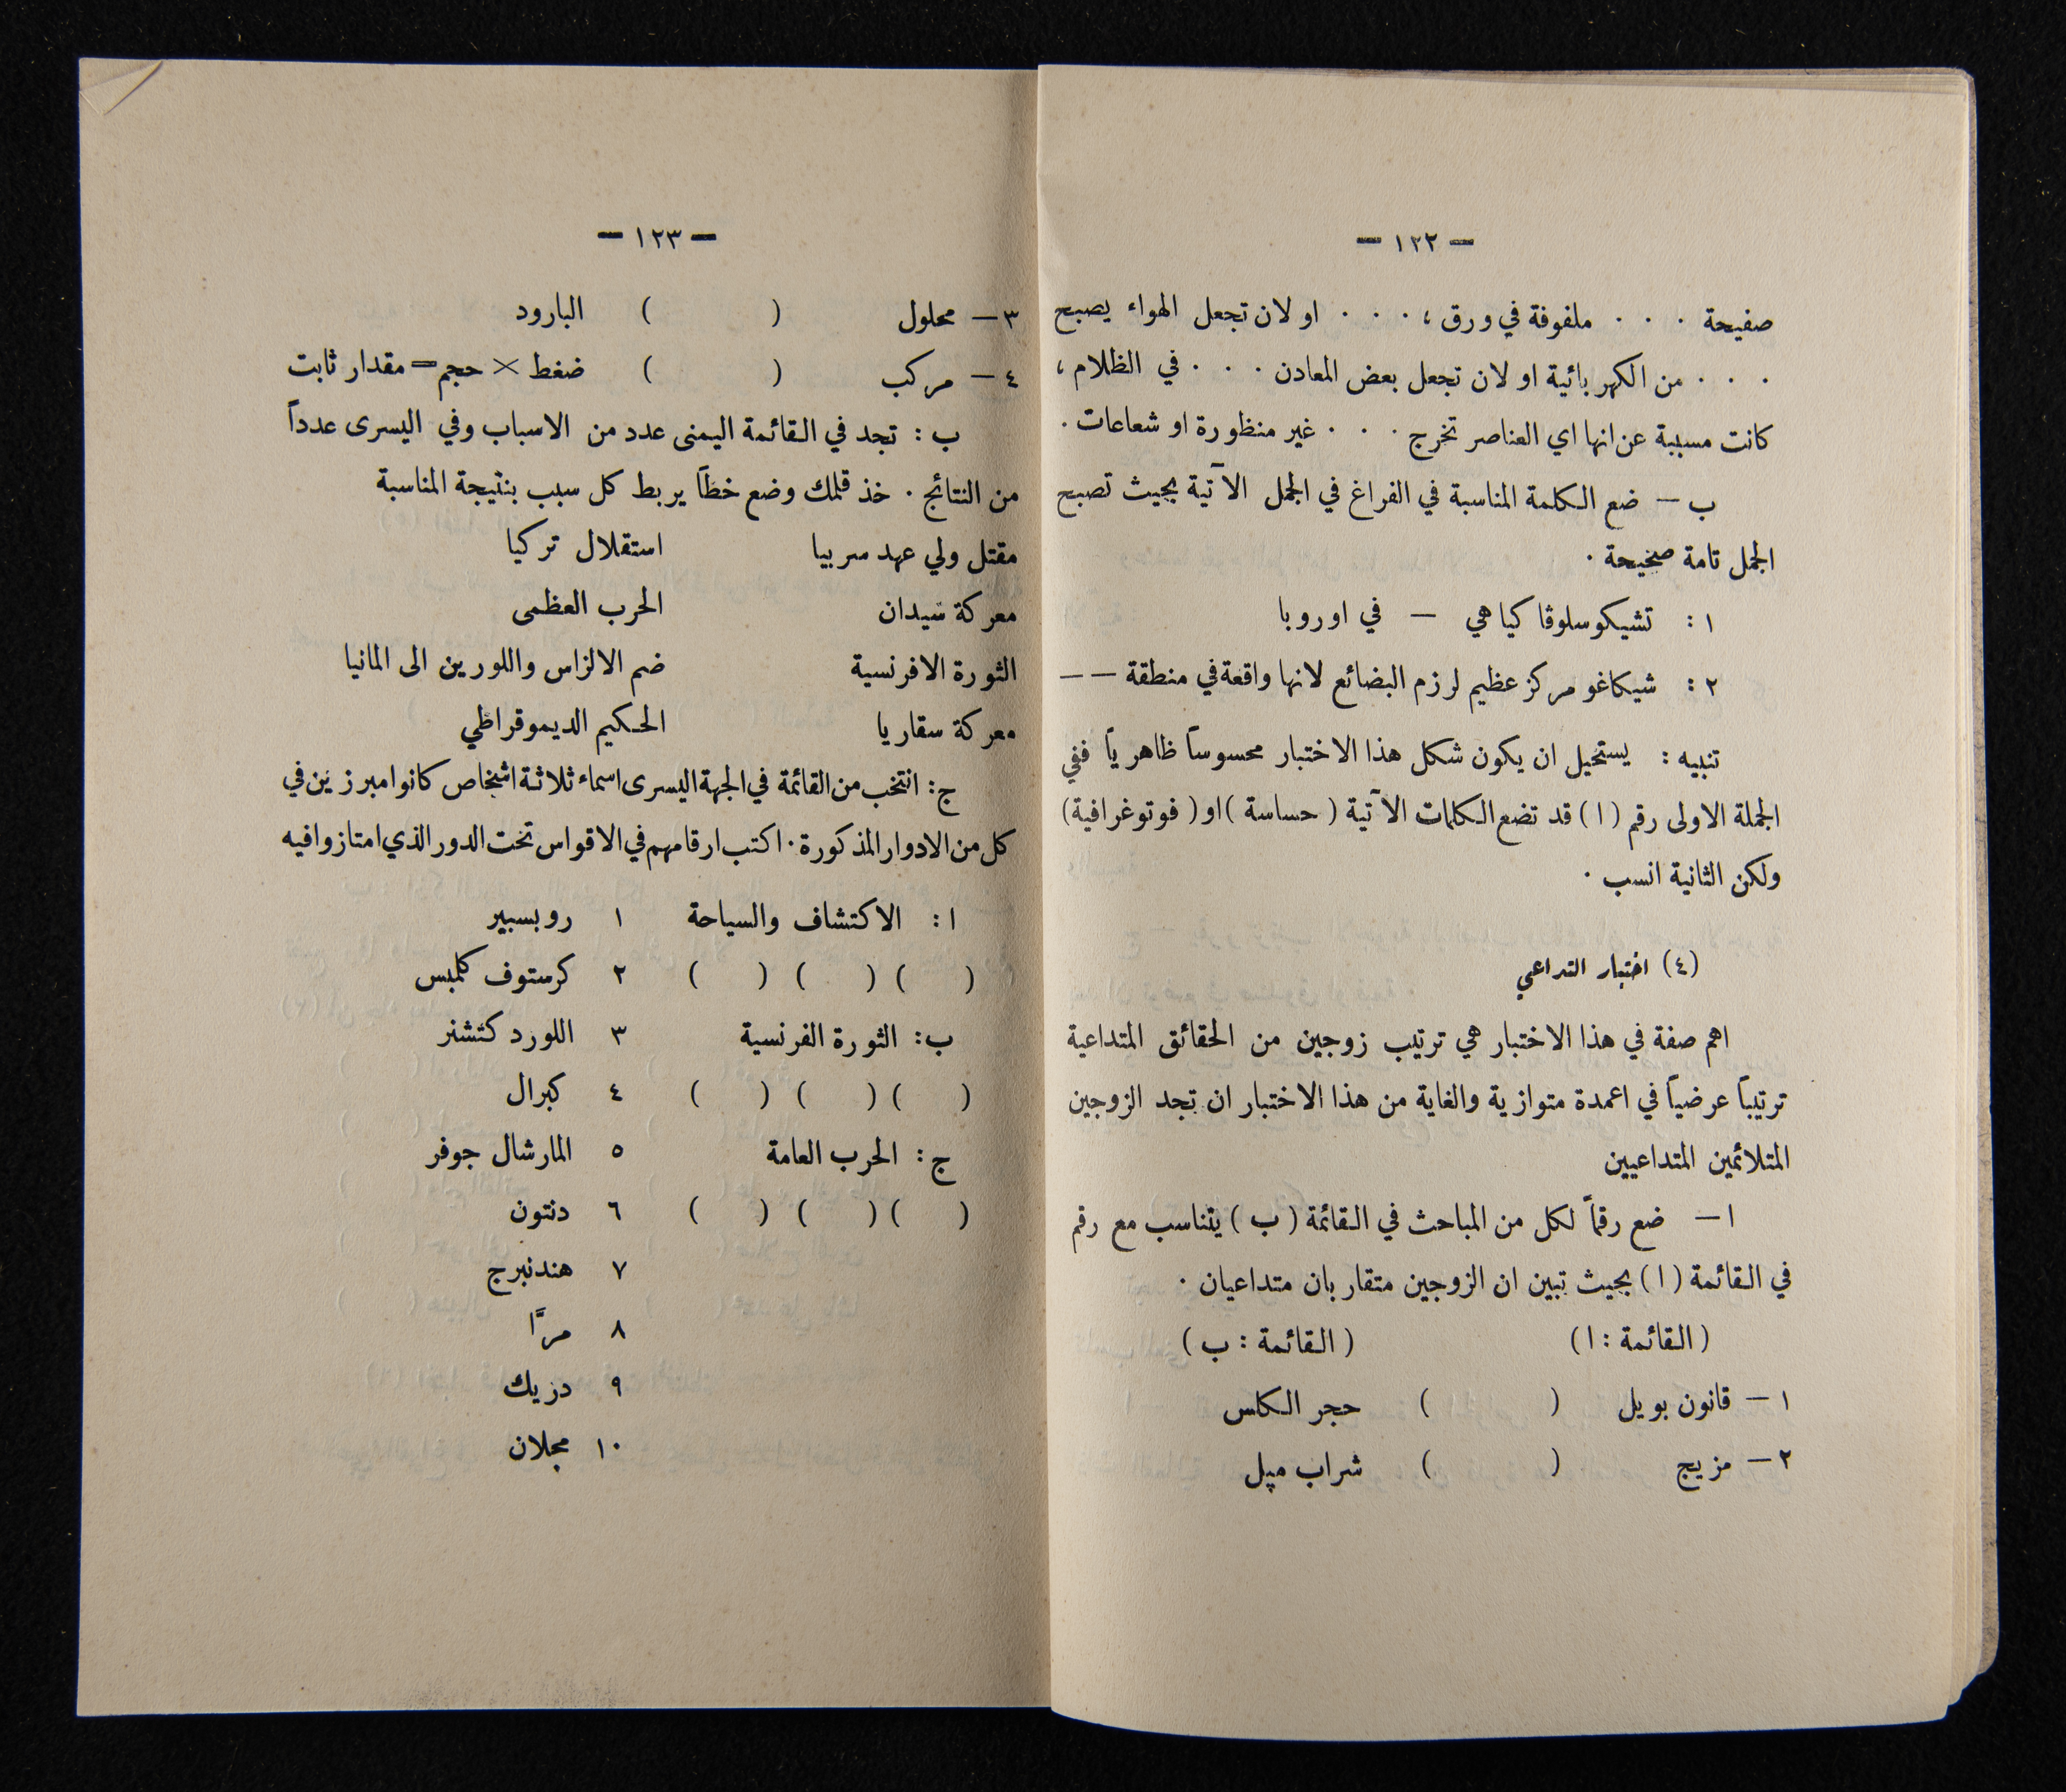 — ١٢٢ —
صفيحة . . . ملفوفة في ورق ، . . . او لان تجعل الهواء يصبح
. . . من الكهربائية او لان تجعل بعض المعادن . . . في الظلام ،
كانت مسببة عن انها اي العناصر تخرج . . . غير منظورة او شعاعات .
ب — ضع الكلمة المناسبة في الفراغ في الجمل الآتية بحيث تصبح
الجمل تامة صحيحة .
١ : تشيكوسلوڤاكيا هي — في اوروبا
٢ : شيكاغو مركز عظيم لرزم البضائع لانها واقعة في منطقة — —
تنبيه : يستحيل ان يكون شكل هذا الاختبار محسوساً ظاهرياً ففي
الجملة الاولى رقم ( ا ) قد تضع الكلمات الآتية ( حساسة ) او ( فوتوغرافية )
ولكن الثانية انسب .
(٤) اختبار التداعي
اهم صفة في هذا الاختبار هي ترتيب زوجين من الحقائق المتداعية
ترتيباً عرضياً في اعمدة متوازية والغاية من هذا الاختبار ان تجد الزوجين
المتلائمين المتداعيين
ا — ضع رقماً لكل من المباحث في القائمة ( ب ) يتناسب مع رقم
في القائمة ( ا ) بحيث تبين ان الزوجين متقاربان متداعيان .
( القائمة : ا ) ( القائمة : ب )
١ — قانون بويل ( ) حجر الكلس
٢ — مزيج ( ) شراب مپل
— ١٢٣ —
٣ — محلول ( ) البارود
٤ — مركب ( ) ضغط × حجم = مقدار ثابت
ب : تجد في القائمة اليمنى عدد من الاسباب وفي اليسرى عدداً
من النتائج . خذ قلمك وضع خطاً يربط كل سبب بنتيجة المناسبة
مقتل ولي عهد سربيا استقلال تركيا
معركة سيدان الحرب العظمى
الثورة الافرنسية ضم الالزاس واللورين الى المانيا
معركة سقاريا الحكيم الديموقراطي
ج : انتخب من القائمة في الجهة اليسرى اسماء ثلاثة اشخاص كانوا مبرزين في
كل من الادوار المذكورة . اكتب ارقامهم في الاقواس تحت الدور الذي امتازوا فيه
ا : الاكتشاف والسياحة ١ روبسبير
( ) ( ) ( ) ٢ كرستوف كلمبس
ب : الثورة الفرنسية ٣ اللورد كتشنر
( ) ( ) ( ) ٤ كبرال
ج : الحرب العامة ٥ المارشال جوفر
( ) ( ) ( ) ٦ دنتون
٧ هندنبرج
٨ مرَّا
٩ دريك
١٠ مجلان